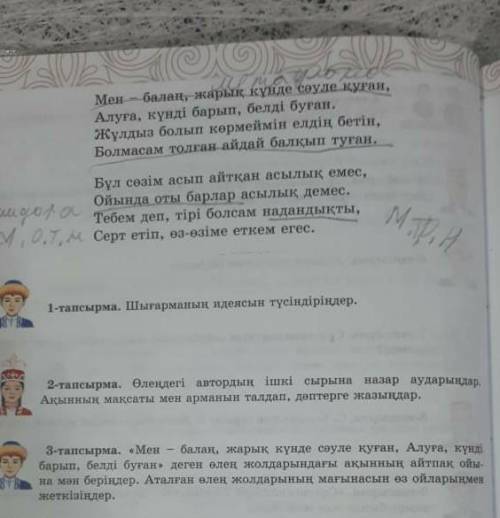 метафора
Мен – балаң, жарық күнде сәуле қуған,
Алуға, күнді барып, белді буған.
Жұлдыз болып көрмеймін елдің бетін,
Болмасам толған айдай балқып туған.
Бұл сөзім асып айтқан асылық емес,
Ойында оты барлар асылық демес.
Тебем деп, тірі болсам надандықты,
Серт етіп, өз-өзіме еткем егес.
1-тапсырма. Шығарманың идеясын түсіндіріңдер.
2-тапсырма. Өлеңдегі автордың ішкі сырына назар аударыңдар.
Ақынның мақсаты мен арманын талдап, дәптерге жазыңдар.
3-тапсырма. «Мен – балаң, жарық күнде сәуле қуған, Алуға, күнді
барып, белді буған» деген өлең жолдарындағы ақынның айтпақ ойы-
на мән беріңдер. Аталған өлең жолдарының мағынасын өз ойларыңмен
жеткізіңдер.